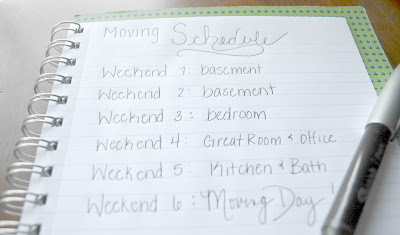 Moving Schedule
Weekend 1: basement
Weekend 2: basement
Weekend 3: bedroom
Weekend 4: Great Room & Office
Weekend 5: Kitchen & Bath
Weekend 6: Moving Day!